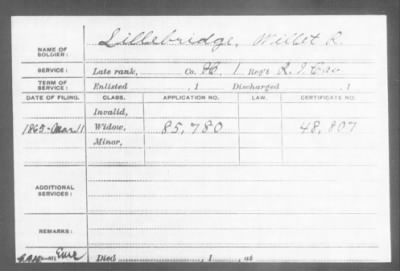 NAME OF SOLDIER: Lillebridge, Willet R.
SERVICE: Late rank, Co. H, 1 Reg't R. I. Cav
TERM OF SERVICE: Enlisted , 1 Discharged , 1
DATE OF FILING. CLASS. APPLICATION NO. LAW. CERTIFICATE NO.
Invalid,
1865-Mar 11 Widow, 85,780 48,807
Minor,
ADDITIONAL SERVICES:
REMARKS:
Died , 1 , at